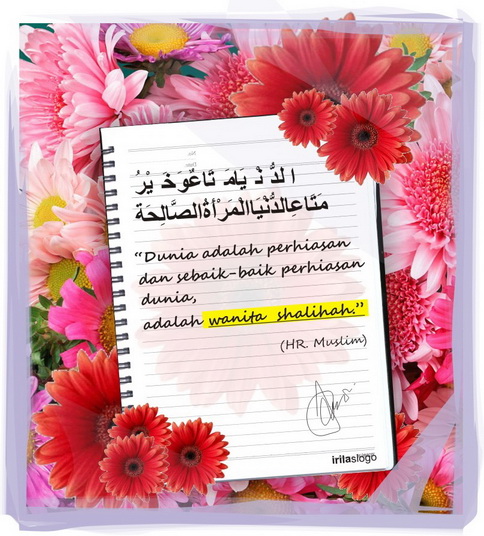 الدُّ نْ يَا مَـ تَا عٌ وَ خَـ يْرُ
مَتَاعِ الدُّنْيَا الْمَرْأَةُ الصَّالِحَةُ
“Dunia adalah perhiasan
dan sebaik-baik perhiasan
dunia,
adalah wanita shalihah.”
(HR. Muslim)
irilaslogo